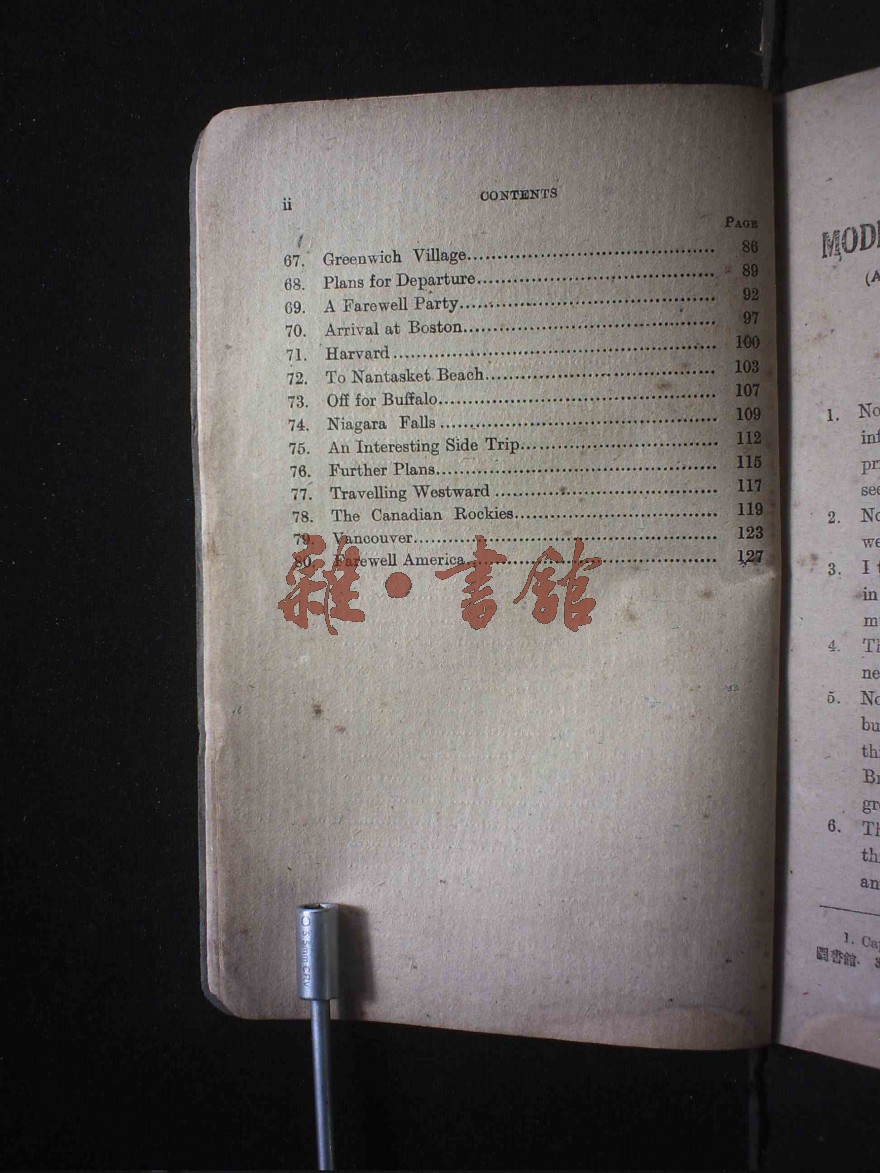 ii
CONTENTS
PAGE
67. Greenwich Village........................................ 86
68. Plans for Departure........................................ 89
69. A Farewell Party........................................ 92
70. Arrival at Boston........................................ 97
71. Harvard........................................ 100
72. To Nantasket Beach........................................ 103
73. Off for Buffalo........................................ 107
74. Niagara Falls........................................ 109
75. An Interesting Side Trip........................................ 112
76. Further Plans........................................ 115
77. Travelling Westward........................................ 117
78. The Canadian Rockies........................................ 119
79. Vancouver........................................ 123
80. Farewell America........................................ 127
雜·書館
MOD
(A
1. No
inf
pr
see
2. No
we
3. I t
in
m
4. Th
ne
5. No
bu
thi
Br
gr
6. Th
th
an
1. Ca
圖書館. S